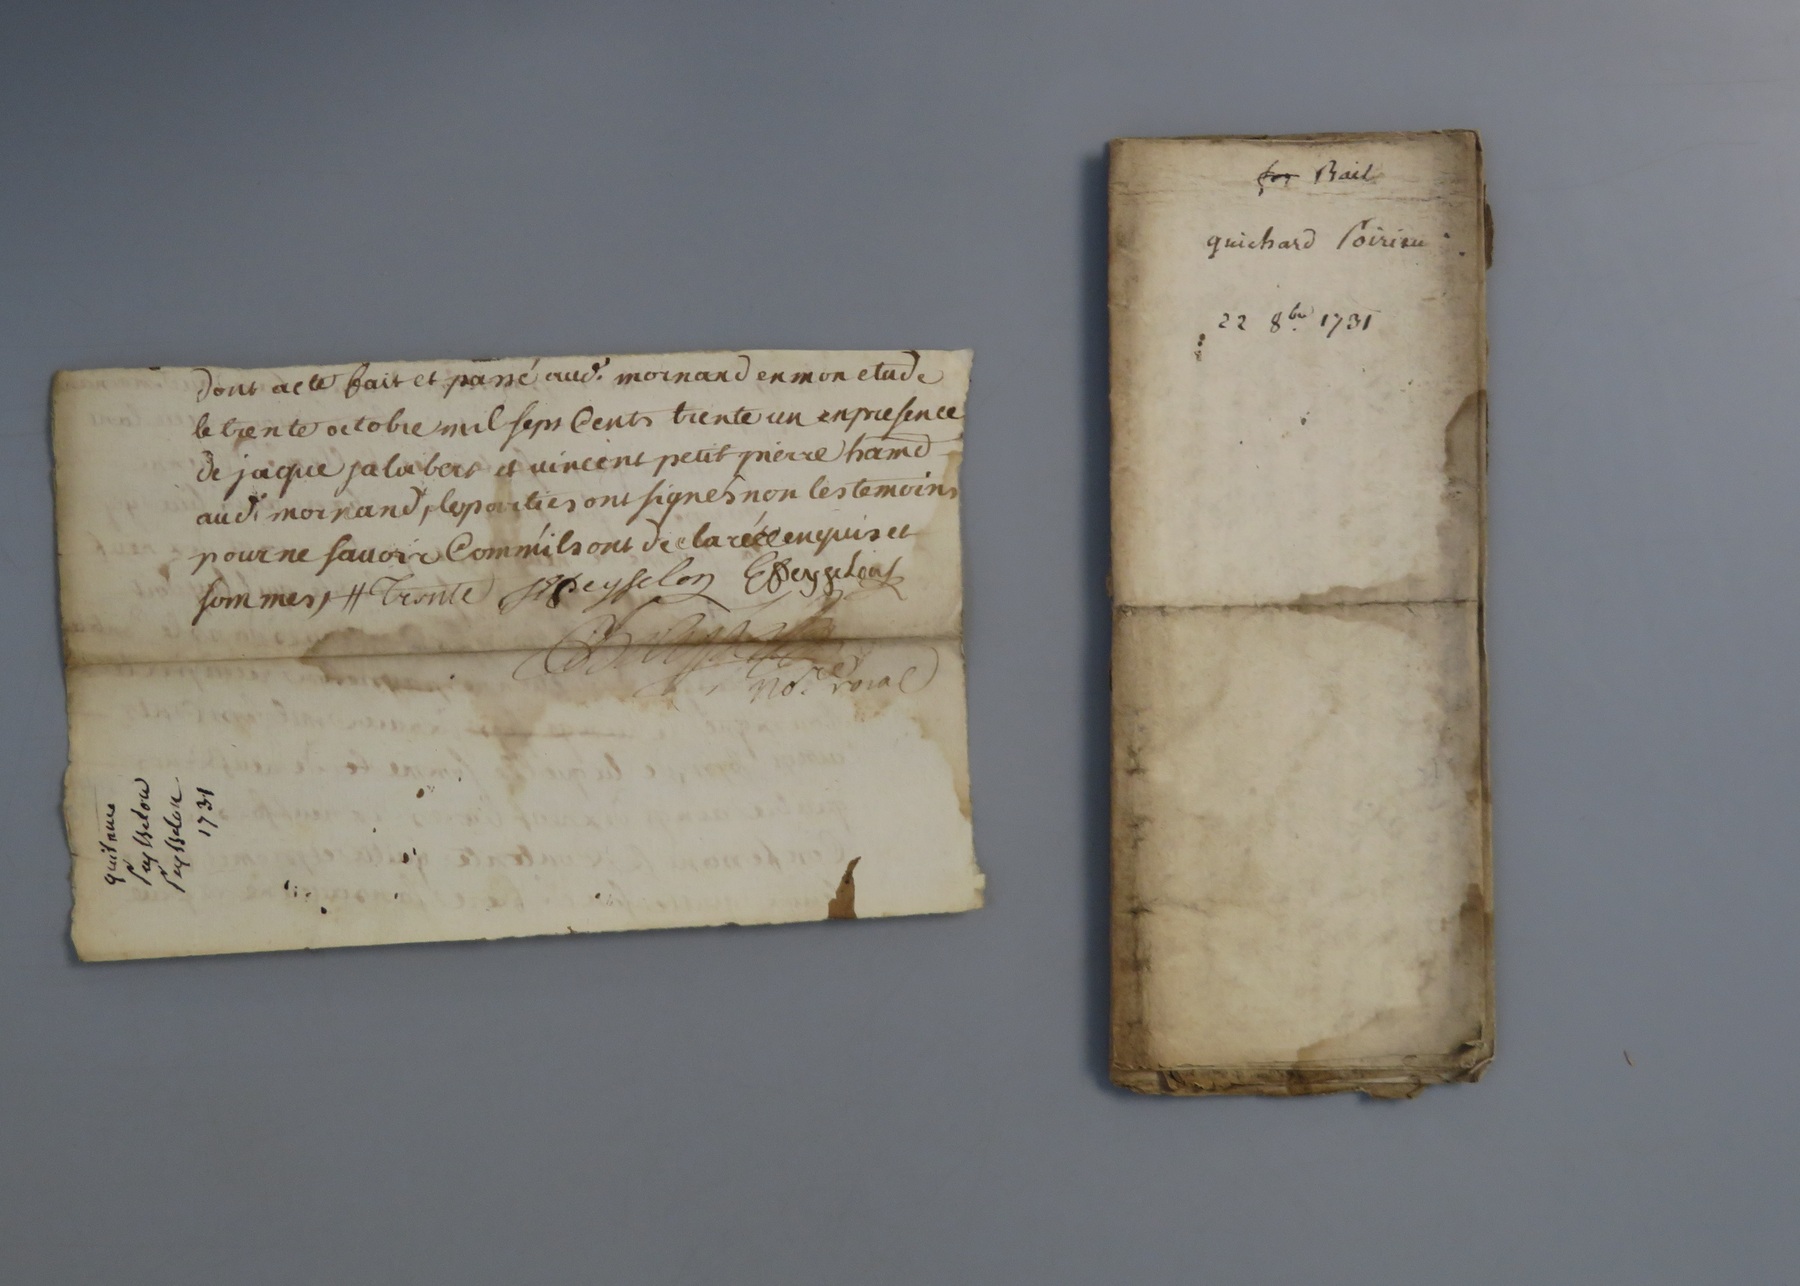 dont acte fait et passé aud. mornand en mon etude
le trente octobre mil sept Cents trente un en presence
de jaque jalabert et vincent petit pierre hamd
aud. mornand, les parties ont signes non les temoins
pour ne savoir Comm'ils ont declaré enquis et
sommes, # Trente Peysselon EPeysselon
no.re roial
quitance
Peysselon
Peysselon
1731
Bail
guichard Poirieu
22 8bre 1731